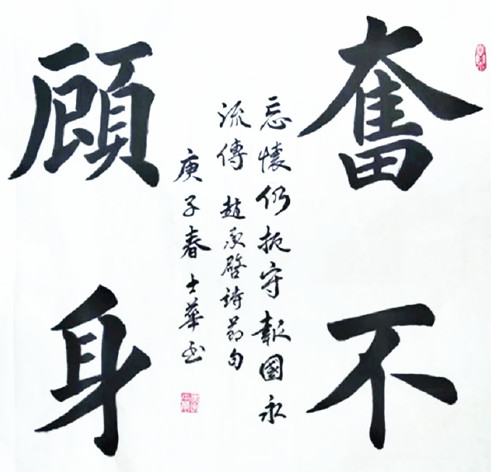 奮不
忘懷仍扼守報國永
流傳 趙承啓詩節句
庚子春 士華書
顧身